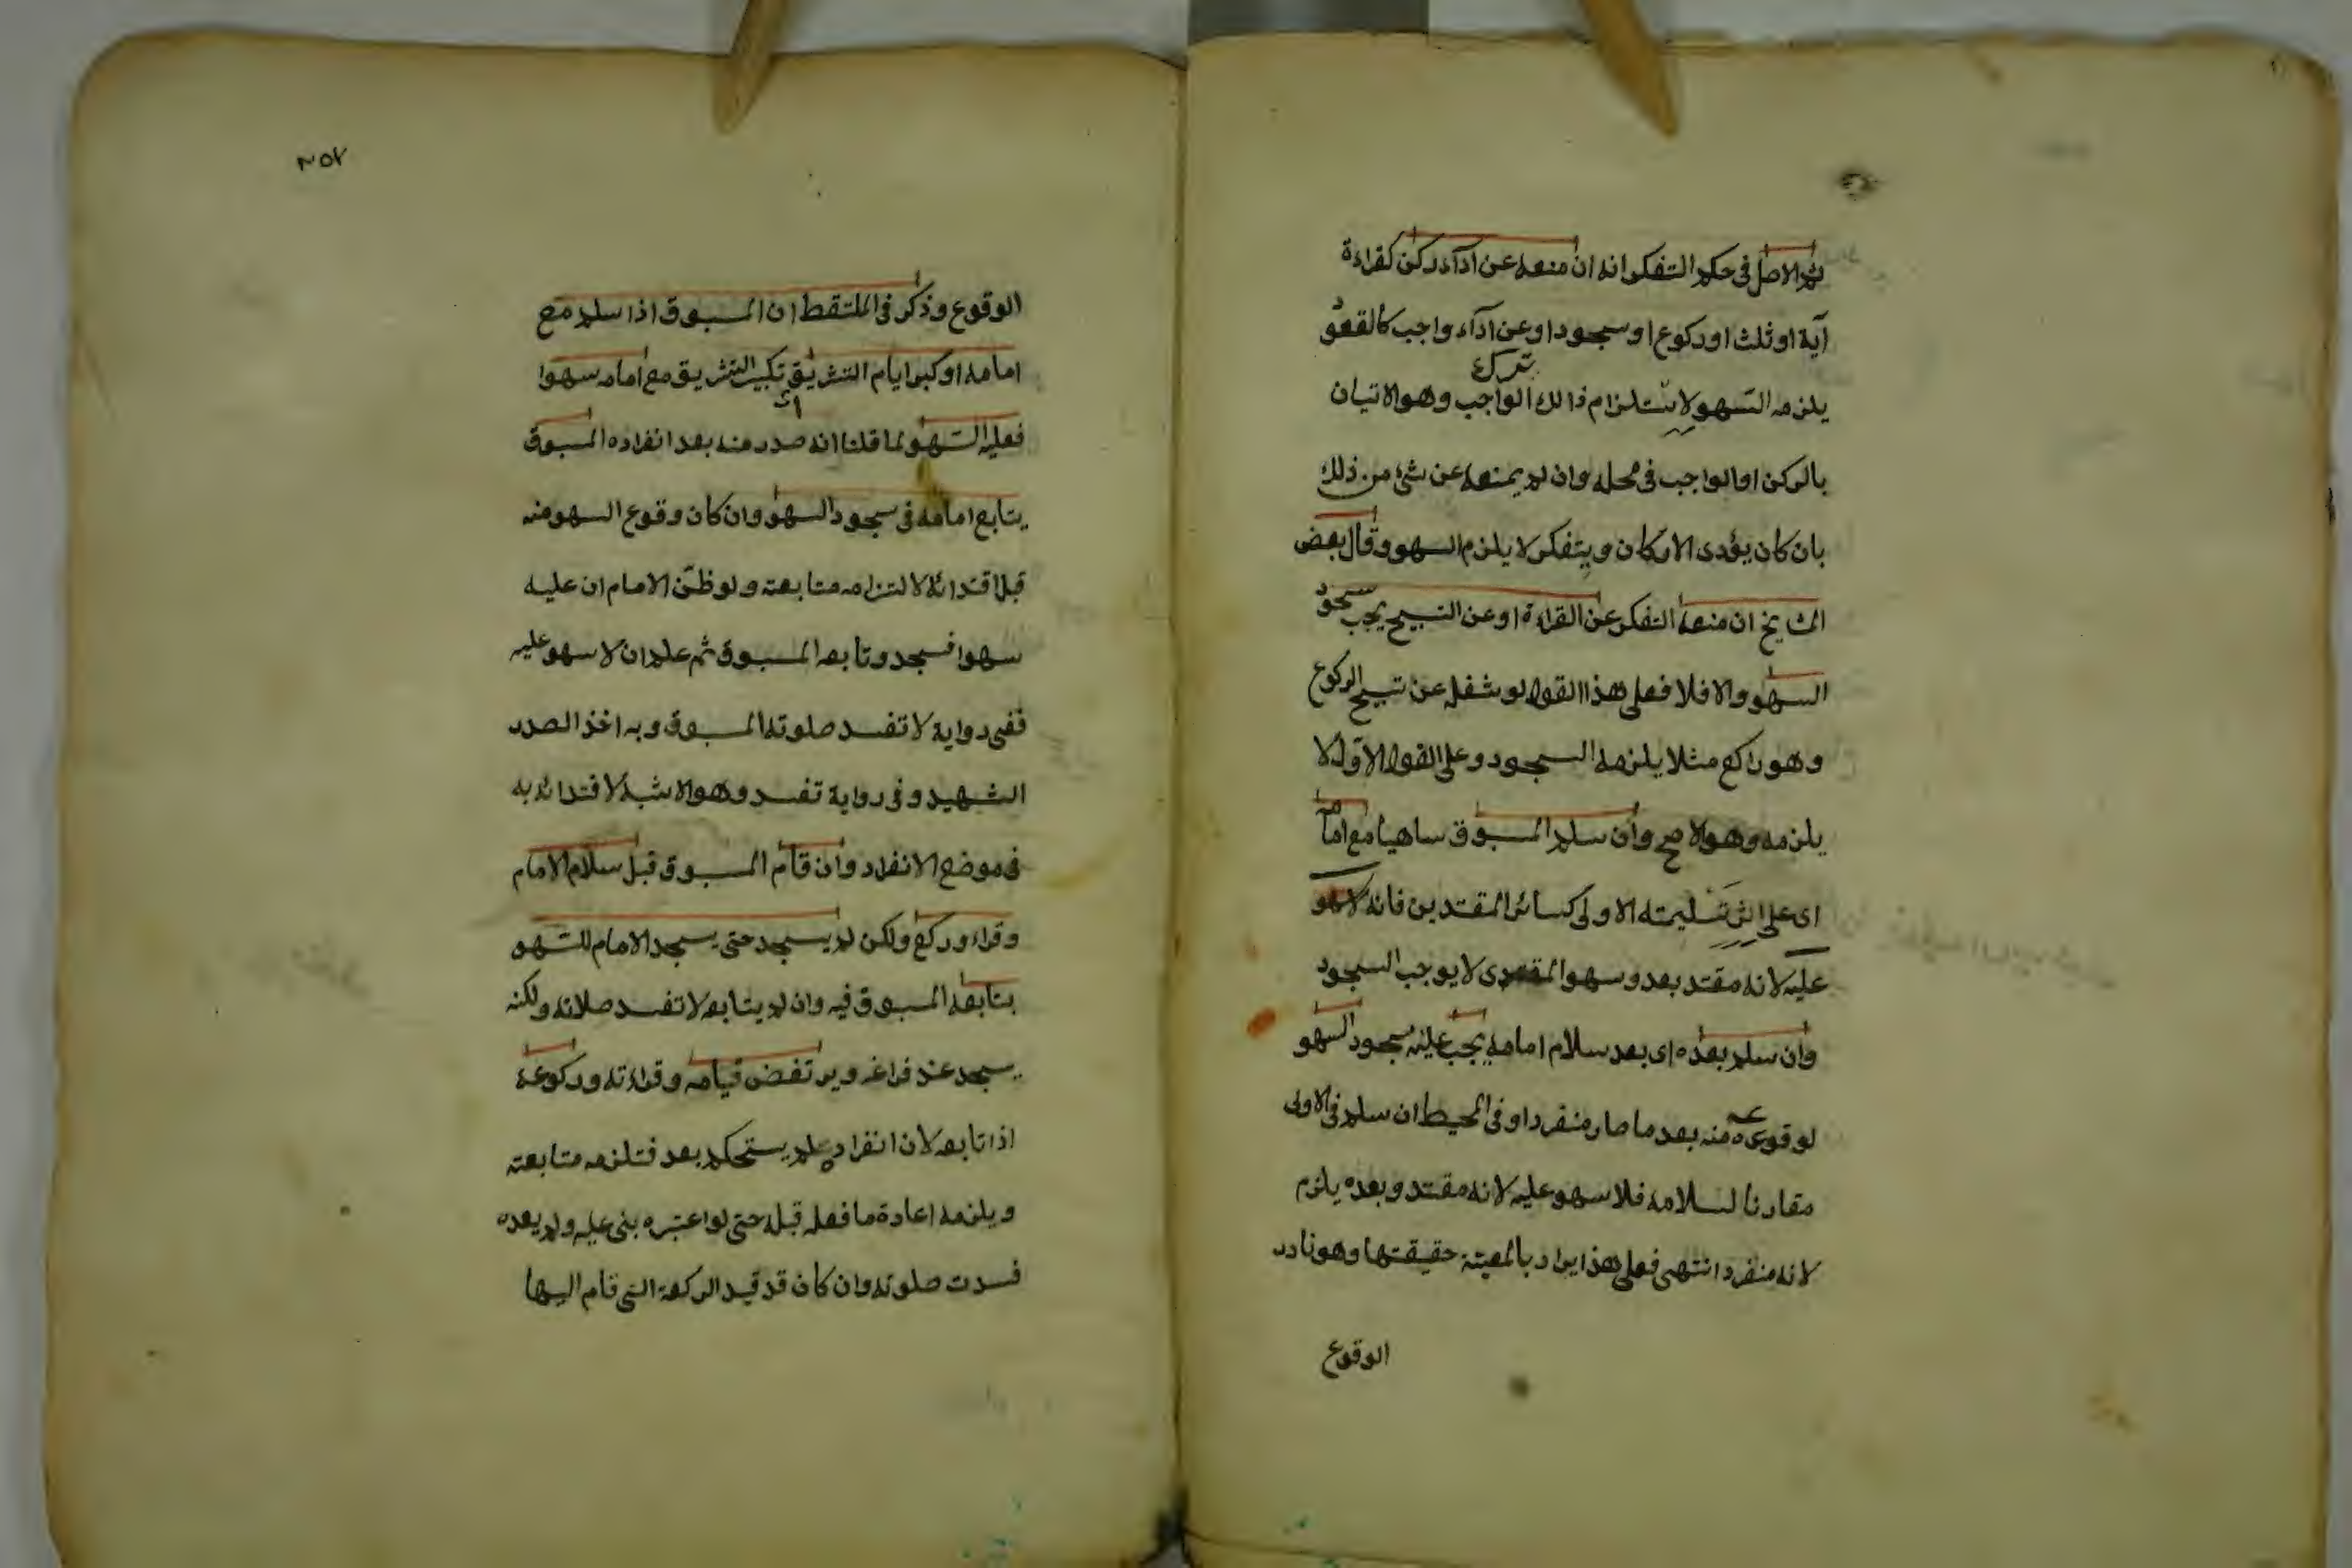 ثم الاصل فى حكم التفكر انه ان منعه عن ادآء ركن كقراءة
آية او ثلث او ركوع او سجود او عن ادآء واجب كالقعود
يلزمه السهو لاستلزام ذالك ترك الواجب وهو الاتيان
بالركن او الواجب فى محله وان لم يمنعه عن شئ من ذلك
بان كان يؤدى الاركان ويتفكر لا يلزم السهو وقال بعض
المشايخ ان منعه التفكر عن القراءة او عن التسبيح يجب سجود
السهو والا فلا فعلى هذا القول لو شغله عن تسبيح الركوع
وهو راكع مثلا يلزمه السجود وعلى القول الاول لا
يلزمه وهو الاصح وان سلم المسبوق ساهيا مع امامه
اى على اثر تسليمته الاولى كسائر المقتدين فانه لا سهو
عليه لانه مقتد بعد وسهو المقتدى لا يوجب السجود
وان سلم بعده اى بعد سلام امامه يجب عليه سجود السهو
لوقوعه منه بعد ما صار منفردا وفى المحيط ان سلم فى الاولى
مقارنا لسلامه فلا سهو عليه لانه مقتد وبعده يلزم
لانه منفرد انتهى فعلى هذا يراد بالمعية حقيقتها وهو نادر
الوقوع
٢٥٧
الوقوع وذكر فى الملتقط ان المسبوق اذا سلم مع
امامه او كبر ايام التشريق تكبير التشريق مع امامه سهوا
فعليه السهو لما قلنا انه صدر منه بعد انفراده المسبوق
يتابع امامه فى سجود السهو وان كان وقوع السهو منه
قبل اقتدائه لالتزامه متابعته ولو ظن الامام ان عليه
سهوا فسجد وتابعه المسبوق ثم علم ان لا سهو عليه
ففى رواية لا تفسد صلوته المسبوق وبه اخذ الصدر
الشهيد وفى رواية تفسد وهو الاشبه لاقتدائه به
فى موضع الانفراد وان قام المسبوق قبل سلام الامام
وقراء وركع ولكن لم يسجد حتى يسجد الامام للسهو
يتابعه المسبوق فيه وان لم يتابعه لا تفسد صلاته ولكنه
يسجد عند فراغه ويرتفض قيامه وقراءته وركوعه
اذا تابعه لان انفراده لم يستحكم بعد فتلزمه متابعته
ويلزمه اعادة ما فعله قبله حتى لو اعتبره بنى عليه ولم يعده
فسدت صلوته وان كان قد قيد الركعة التى قام اليها